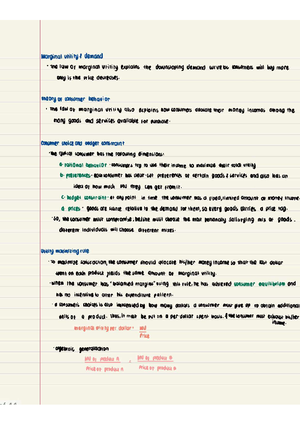 Marginal utility & demand
- the law of marginal utility explains the downsloping demand curve b/c consumers will buy more
only if the price decreases.
Theory of consumer behavior
- the law of marginal utility also explains how consumers allocate their money incomes among the
many goods and services available for purchase.
Consumer choice and budget constraint
- the typical consumer has the following dimensions:
a. rational behavior - consumers try to use their income to maximize their total utility
b. preferences - each consumer has clear-cut preferences of certain goods & services and also has an
idea of how much MU they can get from it.
c. budget constraint - at any point in time the consumer has a fixed, limited amount of money income
d. prices - goods are scarce relative to the demand for them, so every good carries a price tag.
- So, the consumer must compromise; he/she must choose the most personally satisfying mix of goods.
different individuals will choose different mixes.
Utility maximizing rule
- to maximize satisfaction, the consumer should allocate his/her money income so that the last dollar
spent on each product yields the same amount of marginal utility.
- when the consumer has "balanced margins" using this rule, he has achieved consumer equilibrium and
has no incentive to alter his expenditure pattern.
- a consumer's choice is also influenced by how many dollars a consumer must give up to obtain additional
units of a product. thus, it must be put on a per dollar spent basis.
income
marginal utility per dollar: MU
Price
- algebraic generalization
MU of product A = MU of product B
Price of product A Price of product B